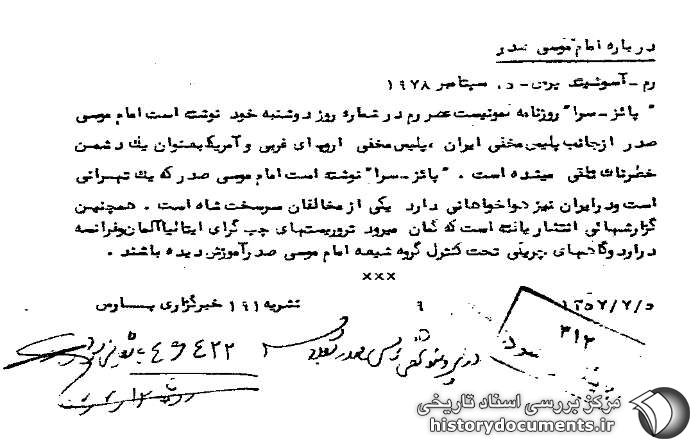 درباره امام موسی صدر
رم - آسوشیتد پرس - سپتامبر ۱۹۷۸
" پائز - سرا" روزنامه کمونیست عصر رم در شماره روز دوشنبه خود نوشته است امام موسی
صدر از جانب پلیس مخفی ایران ، پلیس مخفی اروپای غربی و آمریکا بعنوان یک دشمن
خطرناک تلقی میشده است . " پائز - سرا" نوشته است امام موسی صدر که یک تهرانی
است و در ایران نیز هواخواهانی دارد یکی از مخالفان سرسخت شاه است . همچنین
گزارشهائی انتشار یافته است که گمان میرود تروریستهای چپ گرای ایتالیا آلمان و فرانسه
در اردوگاههای چریکی تحت کنترل گروه شیعه امام موسی صدر آموزش دیده باشند .
×××
نشریه ۱۹۱ خبرگزاری پارس ۹ ۱۳۵۷/۷/۵
۳۱۲
در پرونده موسی صدر
۴۹۴۲۲
مرکز بررسی اسناد تاریخی
historydocuments.ir